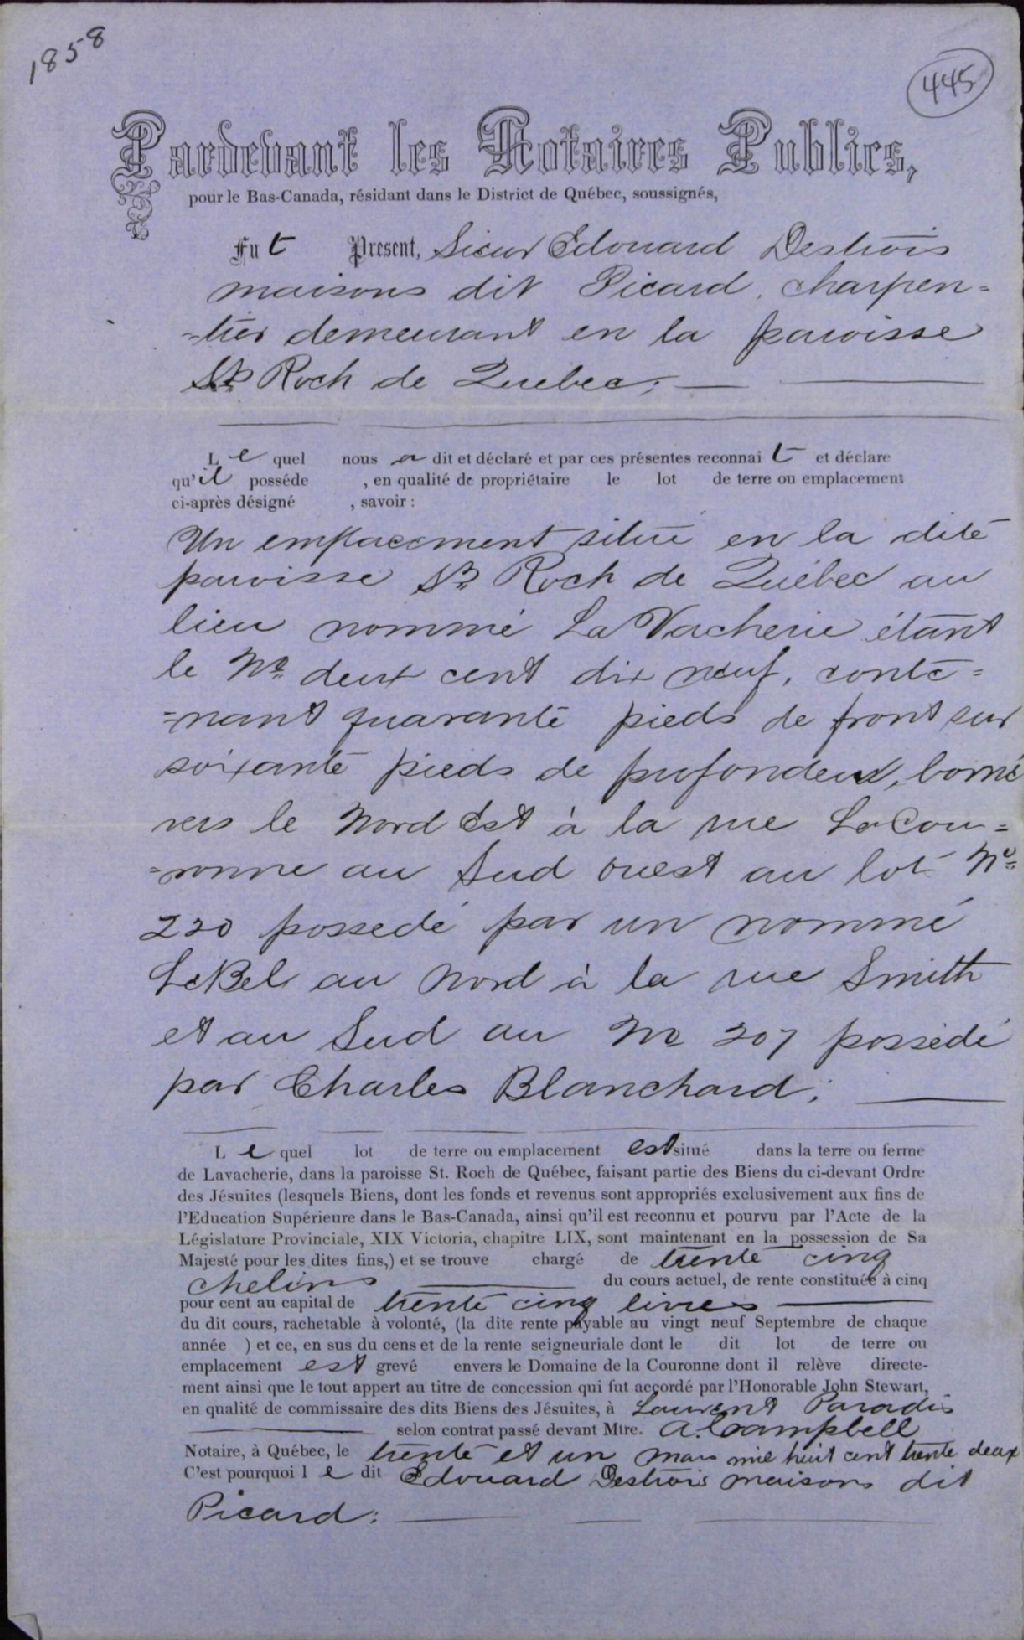 1858
445
Pardevant les Notaires Publics,
pour le Bas-Canada, résidant dans le District de Québec, soussignés,
Fut Present, Sieur Edouard Destrois
maisons dit Picard, charpen=
=tier demeurant en la paroisse
St Roch de Quebec;
Lequel nous a dit et déclaré et par ces présentes reconnait et déclare
qu'il posséde , en qualité de propriétaire le lot de terre ou emplacement
ci-après désigné , savoir :
Un emplacement situé en la dite
paroisse St Roch de Québec au
lieu nommé La Vacherie étant
le No deux cent dix neuf, conte=
=nant quarante pieds de front sur
soixante pieds de profondeur, borné
vers le Nord Est à la rue La Cou=
=ronne au Sud ouest au lot No
220 possedé par un nommé
LeBel au Nord à la rue Smith
et au Sud au No 207 possédé
par Charles Blanchard;
Lequel lot de terre ou emplacement est situé dans la terre ou ferme
de Lavacherie, dans la paroisse St. Roch de Québec, faisant partie des Biens du ci-devant Ordre
des Jésuites (lesquels Biens, dont les fonds et revenus sont appropriés exclusivement aux fins de
l'Education Supérieure dans le Bas-Canada, ainsi qu'il est reconnu et pourvu par l'Acte de la
Législature Provinciale, XIX Victoria, chapitre LIX, sont maintenant en la possession de Sa
Majesté pour les dites fins,) et se trouve chargé de trente cinq
chelins du cours actuel, de rente constituée à cinq
pour cent au capital de trente cinq livres
du dit cours, rachetable à volonté, (la dite rente payable au vingt neuf Septembre de chaque
année ) et ce, en sus du cens et de la rente seigneuriale dont le dit lot de terre ou
emplacement est grevé envers le Domaine de la Couronne dont il relève directe-
ment ainsi que le tout appert au titre de concession qui fut accordé par l'Honorable John Stewart,
en qualité de commissaire des dits Biens des Jésuites, à Laurent Paradis
selon contrat passé devant Mtre. A. Campbell
Notaire, à Québec, le trente et un mars mil huit cent trente deux
C'est pourquoi le dit Edouard Destrois maisons dit
Picard;